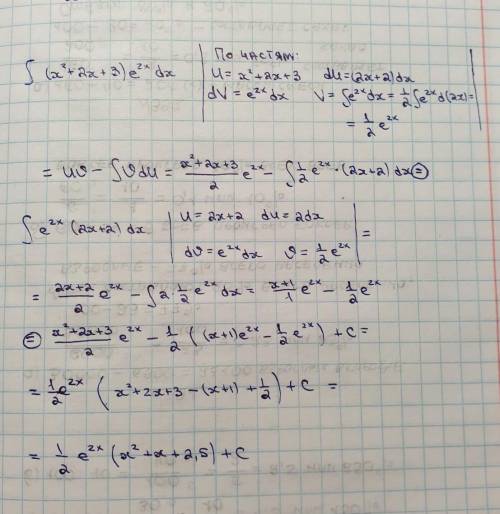 По частям:
∫ (x²+2x+3) e²ˣ dx
U = x²+2x+3 du = (2x+2)dx
dV = e²ˣ dx V = ∫e²ˣ dx = 1/2 ∫e²ˣ d(2x) =
= 1/2 e²ˣ
= UV - ∫Vdu = (x²+2x+3)/2 e²ˣ - ∫ 1/2 e²ˣ · (2x+2) dx ⊜
∫ e²ˣ (2x+2) dx | U = 2x+2 du = 2dx
dV = e²ˣ dx V = 1/2 e²ˣ | =
= (2x+2)/2 e²ˣ - ∫ 2 · 1/2 e²ˣ dx = (x+1)/1 e²ˣ - 1/2 e²ˣ
⊜ (x²+2x+3)/2 e²ˣ - 1/2 ((x+1)e²ˣ - 1/2 e²ˣ) + C =
= 1/2 e²ˣ (x²+2x+3 - (x+1) + 1/2) + C =
= 1/2 e²ˣ (x²+x+2,5) + C